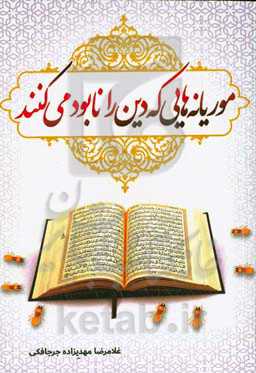 موریانه‌هایی که دین را نابود می‌کنند
غلامرضا مهدیزاده جرجافکی
ketab.ir